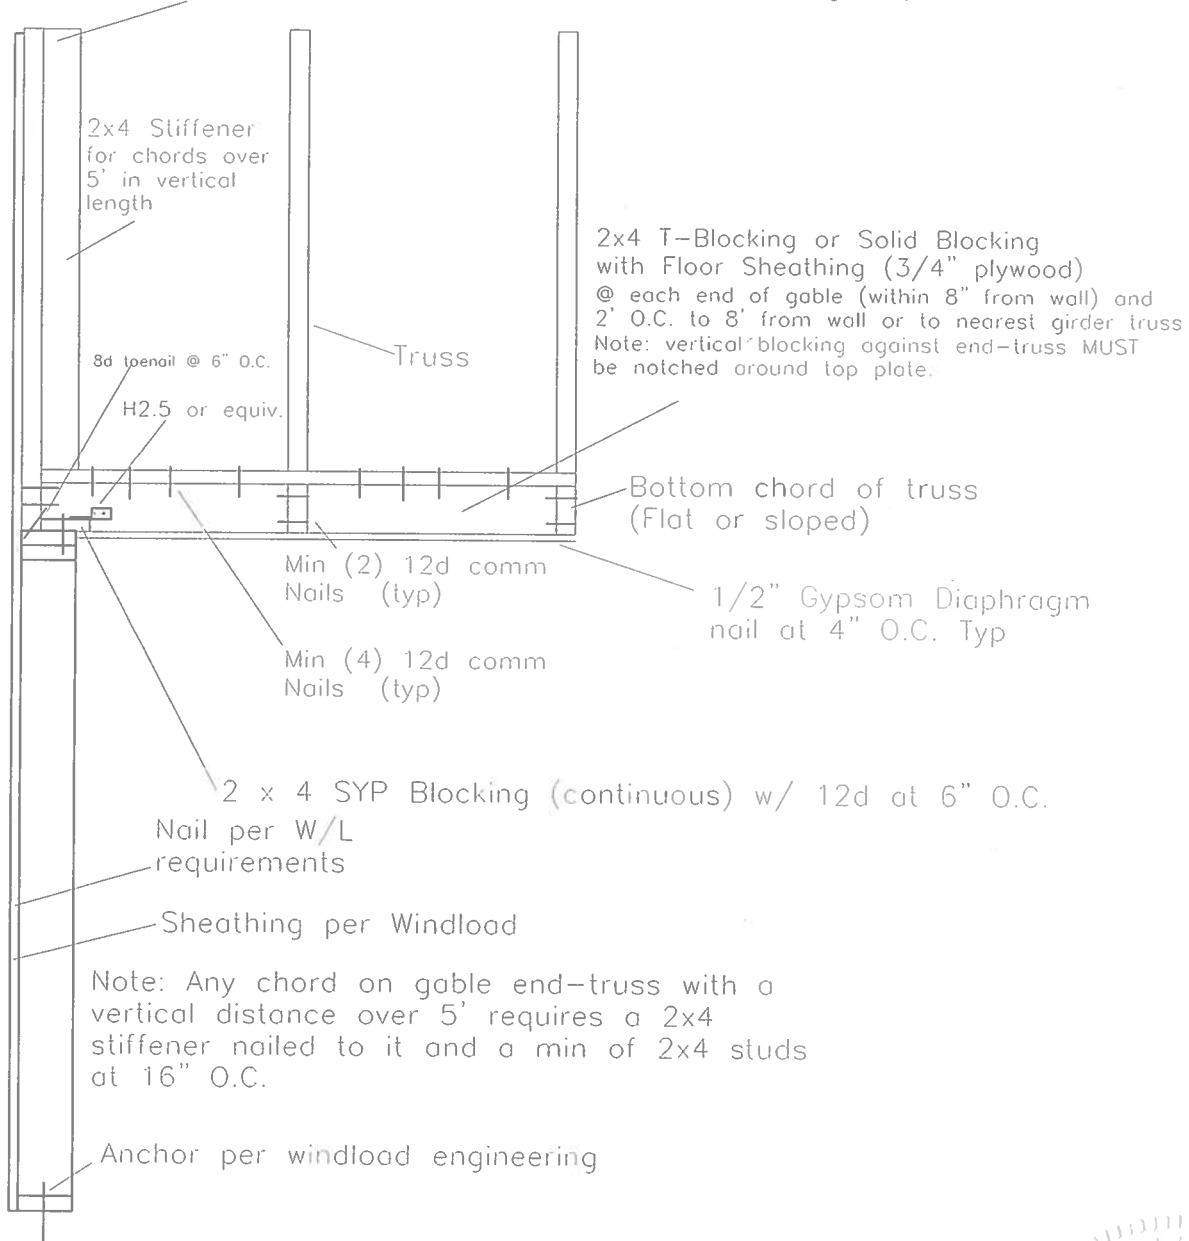 2x4 Stiffener
for chords over
5' in vertical
length
2x4 T-Blocking or Solid Blocking
with Floor Sheathing (3/4" plywood)
@ each end of gable (within 8" from wall) and
2' O.C. to 8' from wall or to nearest girder truss
Note: vertical blocking against end-truss MUST
be notched around top plate.
Truss
8d toenail @ 6" O.C.
H2.5 or equiv.
Bottom chord of truss
(Flat or sloped)
Min (2) 12d comm
Nails (typ)
1/2" Gypsom Diaphragm
nail at 4" O.C. Typ
Min (4) 12d comm
Nails (typ)
2 x 4 SYP Blocking (continuous) w/ 12d at 6" O.C.
Nail per W/L
requirements
Sheathing per Windload
Note: Any chord on gable end-truss with a
vertical distance over 5' requires a 2x4
stiffener nailed to it and a min of 2x4 studs
at 16" O.C.
Anchor per windload engineering